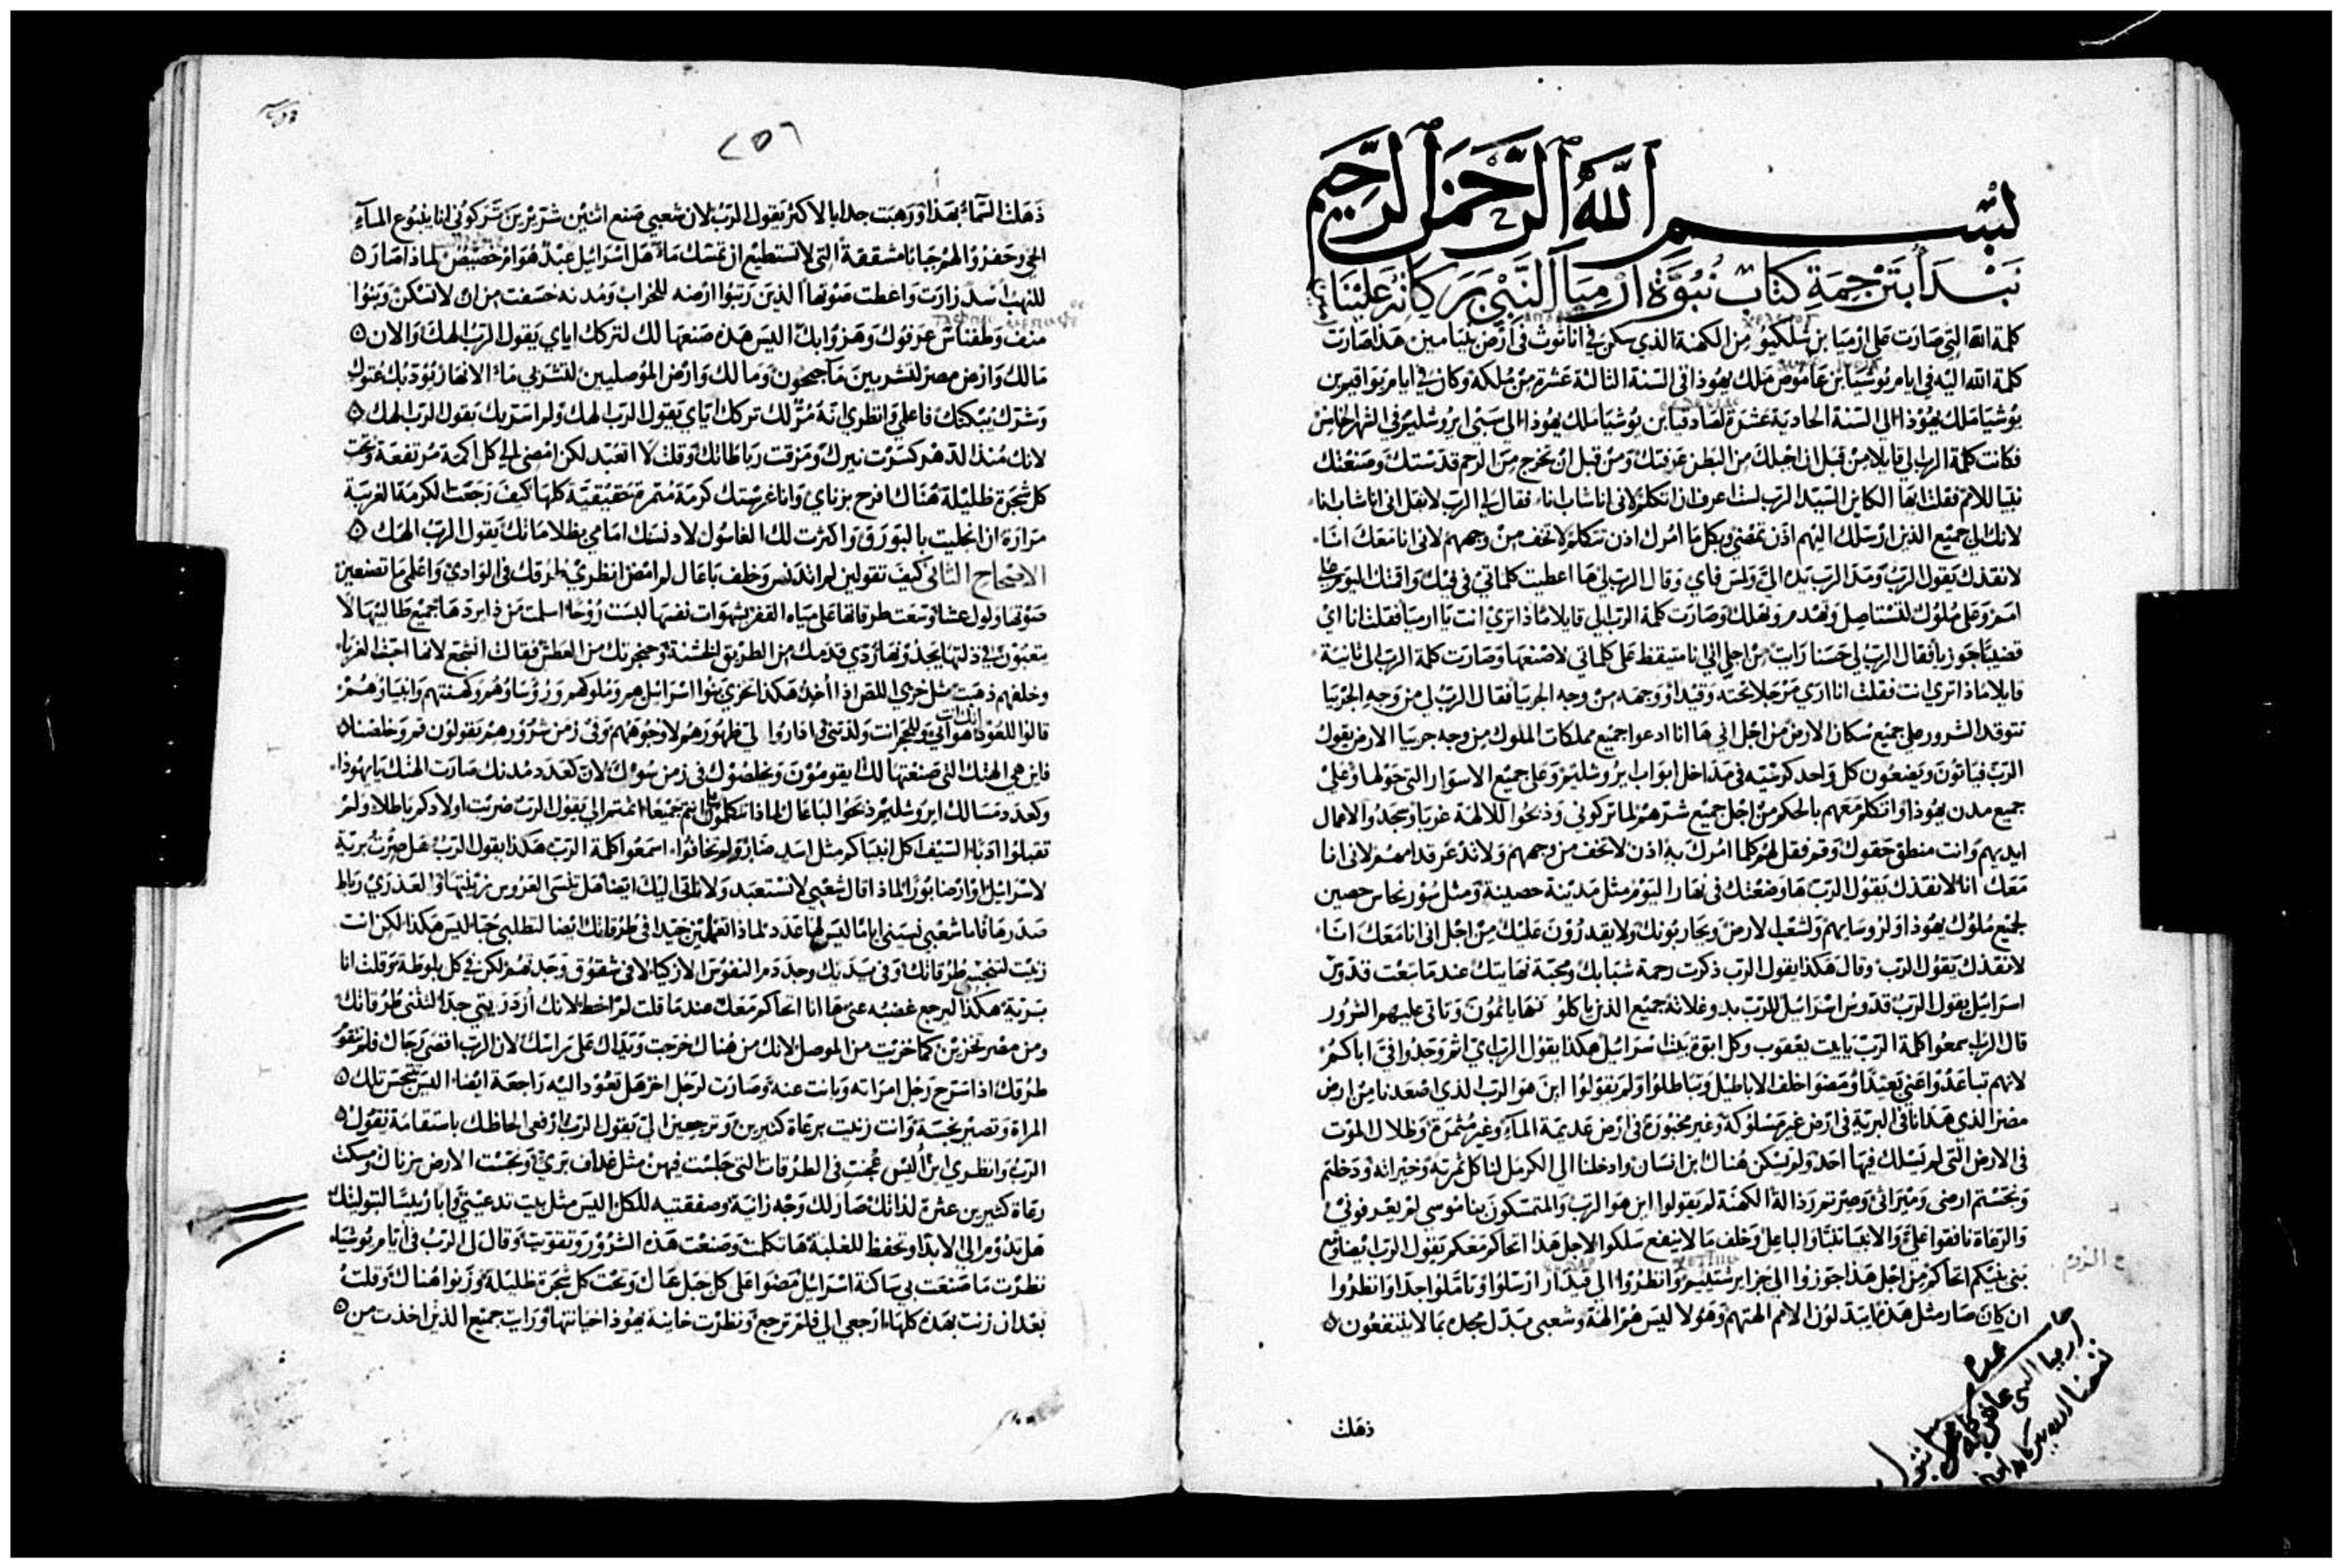 بسم الله الرحمن الرحيم
نبتدا بترجمة كتاب نبوة ارميا النبي بركاته علينا
كلمة الله التي صارت على ارميا بن شلكيو من الكهنة الذي سكن في اناثوث في ارض بنيامين هذا صارت
كلمة الله اليه في ايام يوشيا بن عاموص ملك يهوذا في السنة الثالثة عشرة من ملكه وكان في ايام يواقيم بن
يوشيا ملك يهوذا الى السنة الحادية عشرة لصادقيا بن يوشيا ملك يهوذا الى سبي ايروشليم في الشهر الخامس
فكانت كلمة الرب الي قايلا من قبل ان اجبلك من البطن عرفتك ومن قبل ان تخرج من الرحم قدستك وصنعتك
نبيا للامم فقلت ايها الكاين السيد الرب لست اعرف ان اتكلم لاني انا شاب انا فقال لي الرب لا تقل اني انا شاب انا
لانك الى جميع الذين ارسلك اليهم اذن تمضي وبكل ما امرك اذن تتكلم لا تخف من وجههم لاني انا معك انا
لانقذك يقول الرب ومد الرب يده الي ولمس فاي وقال الرب لي ها اعطيت كلماتي في فيك واقمتك اليوم على
امم وعلى ملوك لتستاصل وتهدم وتهلك وصارت كلمة الرب الي قايلا ماذا ترى انت يا ارميا فقلت انا ارى
قضيبا جوزيا فقال الرب لي حسنا رايت من اجل اني انا متيقظ على كلماتي لاصنعها وصارت كلمة الرب الي ثانية
قايلا ماذا ترى انت فقلت انا ارى مرجلا تحته وقيدا ووجهه من وجه الجربيا فقال الرب لي من وجه الجربيا
تتوقد الشرور على جميع سكان الارض من اجل اني ها انا ادعوا جميع مملكات الملوك من وجه جربيا الارض يقول
الرب فياتون ويضعون كل واحد كرسيه في مداخل ابواب ايروشليم وعلى جميع الاسوار التي حولها وعلى
جميع مدن يهوذا واتكلم معهم بالحكم من اجل جميع شرهم لما تركوني وذبحوا للالهة غربا وسجدوا لاعمال
ايديهم وانت منطق حقوك وقم فقل لهم كلما امرك به اذن لا تخف من وجههم ولا تذعر قدامهم لاني انا
معك انا لانقذك يقول الرب ها وضعتك في نهار اليوم مثل مدينة حصينة ومثل سور نحاس حصين
لجميع ملوك يهوذا ولروسايهم ولشعب الارض ويحاربونك ولا يقدرون عليك من اجل اني انا معك انا
لانقذك يقول الرب وقال هكذا يقول الرب ذكرت رحمة شبابك ومحبة نهايتك عندما تبعت قدوس
اسراييل يقول الرب قدوس اسراييل للرب بدو غلاته جميع الذين ياكلونها ياثمون وتاتي عليهم الشرور
قال الرب اسمعوا كلمة الرب يا بيت يعقوب وكل ابوة بيت اسراييل هكذا يقول الرب اي اثم وجدوا في اباكم
لانهم تباعدوا عني بعيدا ومضوا خلف الاباطيل وتباطلوا ولم يقولوا اين هو الرب الذي اصعدنا من ارض
مصر الذي هدانا في البرية في ارض غير مسلوكة وغير مخبورة في ارض عديمة الماء وغير مثمرة وظلال الموت
في الارض التي لم يسلك فيها احد ولم يسكن هناك ابن انسان وادخلنا الى الكرمل لناكل ثمرته وخيراته ودخلتم
ونجستم ارضي وميراثي وصيرتموه رذالة الكهنة لم يقولوا اين هو الرب والمتمسكون بناموسي لم يعرفوني
والرعاة نافقوا علي والانبيا تنبا والباعل وخلف ما لا ينفع سلكوا لاجل هذا احاكم معكم يقول الرب ايضا ومع
بني بنيكم احاكم من اجل هذا جوزوا الى جزاير شتييم وانظروا الى قيدار ارسلوا وتاملوا جدا وانظروا
ان كان صار مثل هذه ان يبدلون الامم الهتهم وهولا ليس هم الهة وشعبي بدل مجده بما لا ينتفعون
ذهلت
ارميا النبي
٢٥٦
ذهلت السماء بهذا ورهبت جدا بالاكثر يقول الرب لان شعبي صنع اثنين شريرين تركوني انا ينبوع الماء
الحي وحفروا لهم جبابا مشققة التي لا تستطيع ان تمسك ماء هل اسراييل عبد هو ام خصيص لماذا صار
للنهب اسد زارت واعطت صوتها الذين رتبوا ارضه للخراب ومدنه خسفت من ان لا تسكن وبنوا
منف وطفناس عرفوك وهزوا بك اليس هذه صنعها لك لتركك اياي يقول الرب الهك والان
مالك وارض مصر لتشربين ما جيحون وما لك وارض الموصليين لتشربي ماء الانهار يودبك عتوك
وشرك يبكتك فاعلمي وانظري انه مر لك تركك اياي يقول الرب الهك ولم اسر بك يقول الرب الهك
لانك منذ الدهر كسرت نيرك ومزقت رباطاتك وقلت لا اتعبد لكن امضي الى كل اكمة مرتفعة وتحت
كل شجرة ظليلة هناك افرح بزناي وانا غرستك كرمة مثمرة حقيقية كلها كيف رجعت الكرمة الغريبة
مرارة ان انجليت بالبورق واكثرت لك الغاسول لا دنسك امامي بظلاماتك يقول الرب الهك
الاصحاح الثاني كيف تقولين لم اتدنس وخلف باعال لم امض انظري طرقك في الوادي واعلمي ما تصنعين
صوتها ولول عشا وسعت طرقاتها على مياه القفر بشهوات نفسها البست روحا اسلمت من ذا يردها جميع طالبيها لا
يتعبون في ذلتها يجدونها ردي قدمك من الطريق الخشنة وحنجرتك من العطش فقالت اتشجع لانها احبت الغرباء
وخلفهم ذهبت مثل خزي اللص اذا اخذ هكذا تخزى بنوا اسراييل هم وملوكهم وروساوهم وكهنتهم وانبياوهم
قالوا للعود انك انت هو ابي وللحجر انت ولدتني فاداروا لي ظهورهم لا وجوههم وفي زمن شرورهم يقولون قم وخلصنا
فاين هي الهتك التي صنعتها لك ايقومون ويخلصوك في زمن سوك لان كعدد مدنك صارت الهتك يا يهوذا
وكعدد مسالك ايروشليم ذبحوا للباعال لماذا تتكلمون علي انتم جميعا اثمتم الي يقول الرب ضربت اولادكم باطلا ولم
تقبلوا ادبا السيف اكل انبياكم مثل اسد ضار ولم تخافوا اسمعوا كلمة الرب هكذا يقول الرب هل صرت برية
لاسراييل او ارضا بورا لماذا قال شعبي لا نستعبد ولا ناتي اليك ايضا هل تنسى العروس زينتها والعذري رباط
صدرها فاما شعبي نسيني اياما ليس لها عدد لماذا تعملين جيدا في طرقاتك ايضا لتطلبي حبا ليس هكذا لكن انت
زنيت لتنجسي طرقاتك وفي يديك وجد دم النفوس الازكيا لا في شقوق وجدتهم لكن في كل بلوطة وقلت انا
برية هكذا ليرجع غضبه عني ها انا احاكم معك عندما قلت لم اخط لانك ازدريتي جدا لتثني طرقاتك
ومن مصر تخزين كما خزيت من الموصل لانك من هناك خرجت ويداك على راسك لان الرب اقصى رجاك فلم تتقو
طرقك اذا سرح رجل امراته وبانت عنه وصارت لرجل اخر هل تعود اليه راجعة ايضا اليس تتنجس تلك
المراة وتصير نجسة وانت زنيت برعاة كثيرين وترجعين الي يقول الرب ارفعي الحاظك باستقامة يقول
الرب وانظري اين اليس عجنت في الطرقات التي جلست فيهن مثل غداف بري ونجست الارض بزناك ومسكت
رعاة كثيرين عثرة لذاتك صار لك وجه زانية وصفقتيه للكل اليس مثل بيت تدعيني وابا وريسا لبتوليتك
هل تدوم الى الابد او تحفظ للغلبة ها تكلمت وصنعت هذه الشرور وتقويت وقال لي الرب في ايام يوشيا
نظرت ما صنعت بي ساكنة اسراييل مضوا على كل جبل عال وتحت كل شجرة ظليلة وزنوا هناك وقلت
بعد ان زنت بهذه كلها ارجعي الي فلم ترجع ونظرت خاينة يهوذا خيانتها ورات جميع الذين اخذت من